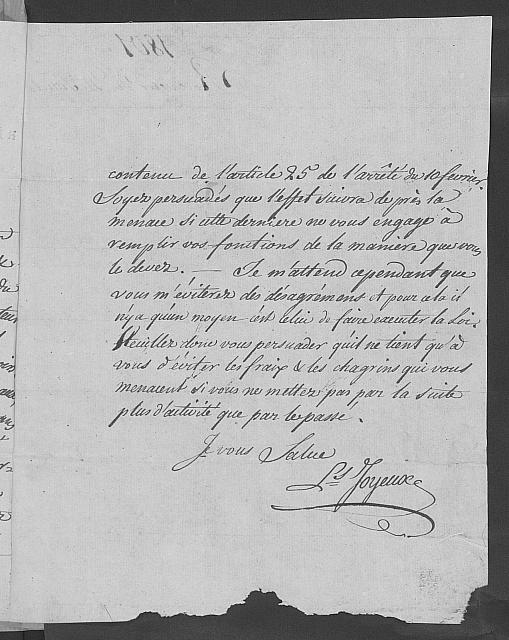 contenu de l'article 25e de l'arrêté du 10 fevrier.
Soyez persuadés que l'effet suivra de près la
menace si cette derniere ne vous engage à
remplir vos fonctions de la manière que vous
le devez. — Je m'attend cependant que
vous m'éviterez des désagrémens et pour cela il
n'y a qu'un moyen c'est celui de faire executer la Loi.
Veuillez donc vous persuader qu'il ne tient qu'à
vous d'éviter les fraix & les chagrins qui vous
menacent si vous ne mettez pas par la suite
plus d'activité que par le passé.
Je vous Salue
Ls Joyeux